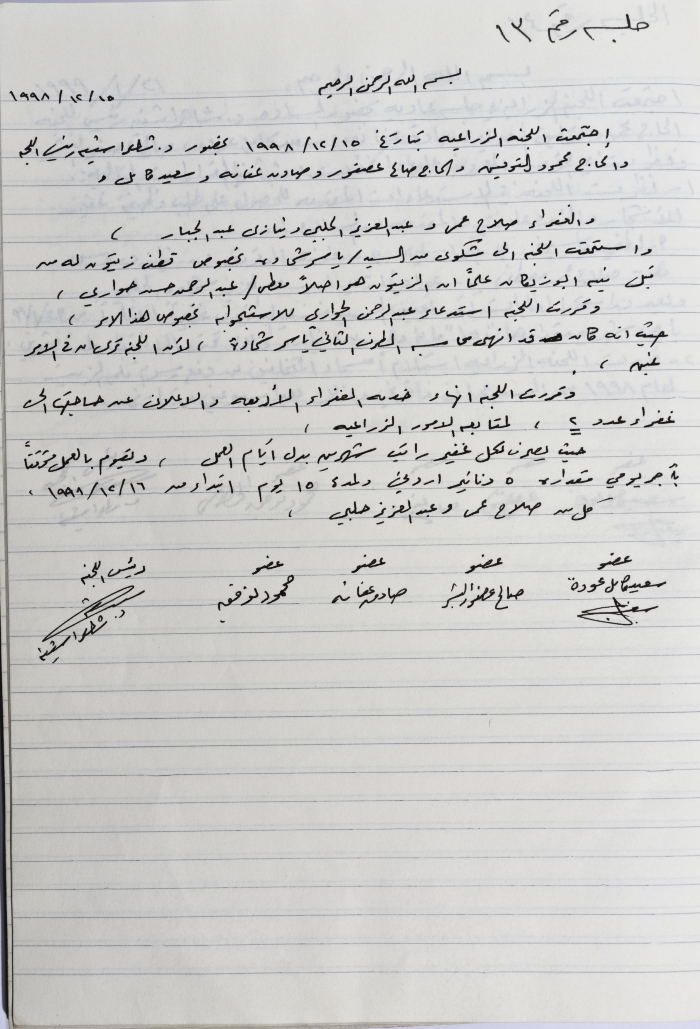 جلسه رقم ١٣
بسم الله الرحمن الرحيم
١٩٩٨/١٢/١٥
إجتمعت اللجنه الزراعيه بتاريخ ١٩٩٨/١٢/١٥ بحضور د. شطلو اشتيه رئيس اللجنه
والحاج محمود التوفيق والحاج صالح عصفور وصادق عنانه وسعيد كامل و
والغفراء صلاح عمر و عبد العزيز الحلبي ونيازي عبد الجبار ،
واستمعت اللجنه الى شكوى من السيد/ ياسر شحاده بخصوص قطف زيتون له من
قبل علماً ان الزيتون هو اصلاً معطى/ عبد الرحمن حسن حواري ،
وقررت اللجنه استدعاء عبد الرحمن الحواري للاستجواب بخصوص هذا الامر ،
حيث انه كان قد انهى محاسبه الطرف الثاني ياسر شحادة ، لأن اللجنة ترى ان في الامر
غبن ،
وقررت اللجنه انهاء خدمه الغفراء الأربعه والاعلان عن حاجتها الى
غفراء عدد ٢ ، لمتابعه الامور الزراعيه ،
حيث يصرف لكل غفير راتب شهرين بدل أيام العمل ، وليقوم بالعمل مؤقتاً
بأجر يومي مقداره ٥ دنانير اردني ولمدة ١٥ يوم ابتداء من ١٩٩٨/١٢/١٦ ،
كل من صلاح عمر وعبد العزيز حلبي ،
عضو عضو عضو عضو رئيس اللجنه
سعيد كامل عودة صالح عصفور صادق عنانه محمود توفيق
د. شطلو اشتيه